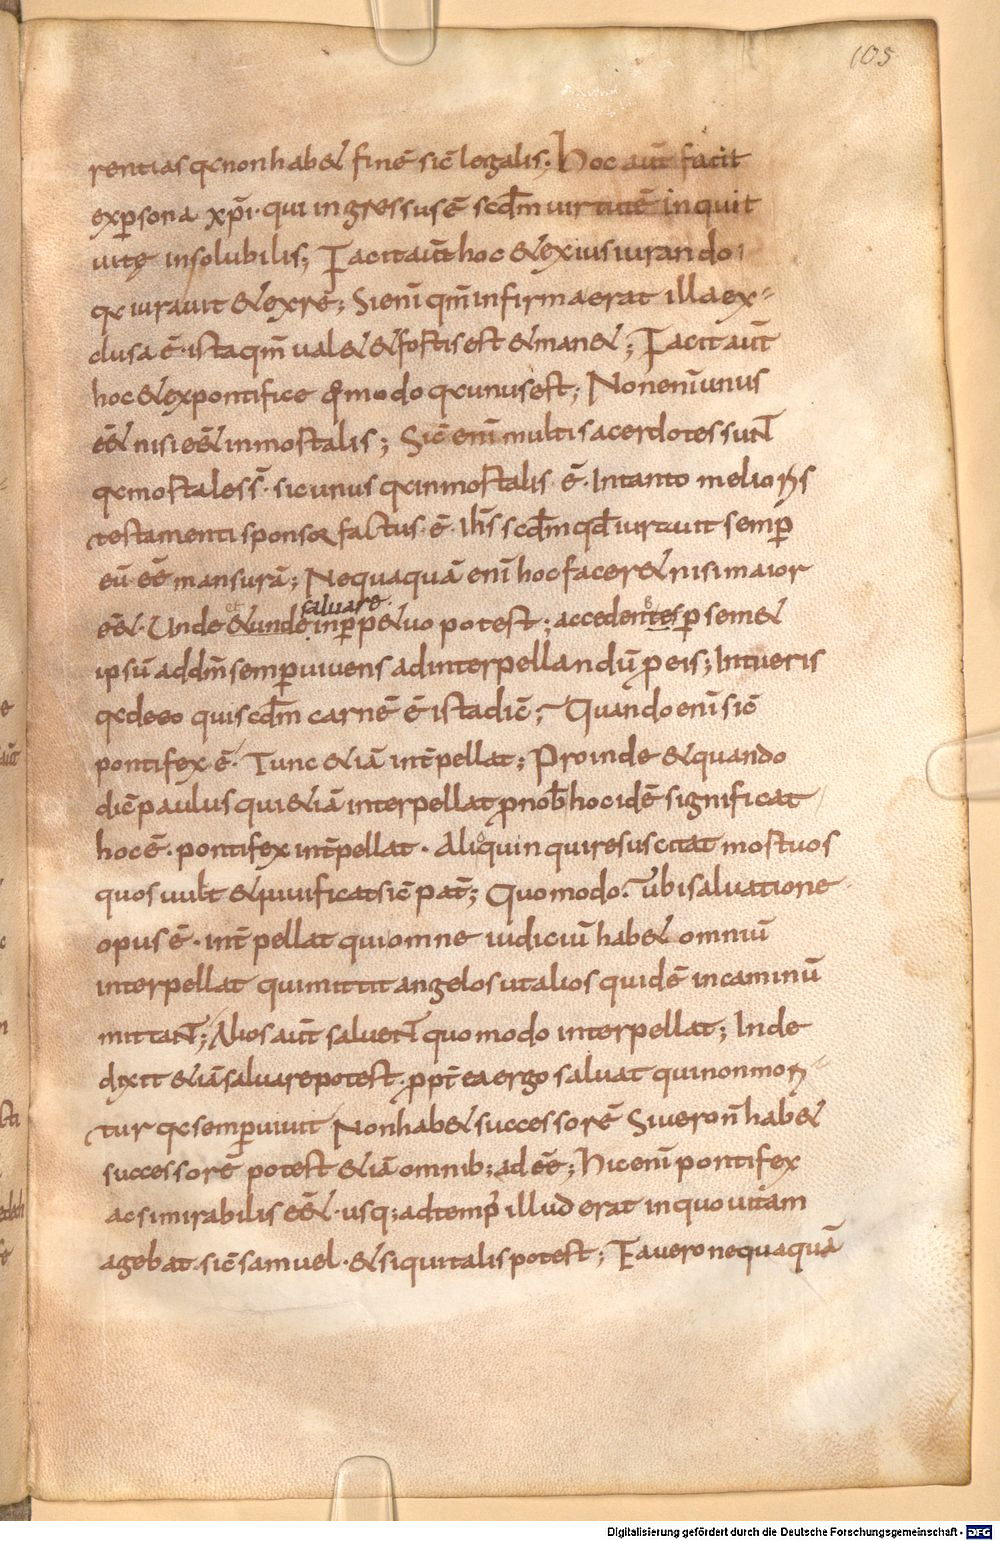 105
rentias qr non habet finē sic̄ legalis; Hoc aūt facit
exp̱sona xp̄i· qui ingressus ē scd̄m uirtutē inquit
uitę insolubilis; Facit aūt hoc & ex iusiurando·
qr iurauit & ex rē; Si enī qm̄ infirma erat illa ex-
clusa ē· ista qm̄ ualet & fortis est & manet; Facit aūt
hoc & ex pontifice quomodo qr unus est; Non enī unus
eēt nisi eēt inmortalis; Sic̄ enī multi sacerdotes sunt
qr mortales s̄· sic unus qr inmortalis ē· In tanto melioris
testamenti sponsor factus ē· ih̄s scd̄m qd̄ iurauit semp̱
eū eē mansurū; Nequaquā enī hoc faceret nisi maior
eēt· Unde & unde inp̱petuo potest; accedentes p̱ semet
saluare
ipsū ad dm̄ semp̱ uiuens ad interpellandū p̱ eis; Intueris
qr de eo qui scd̄m carnē ē ista dic̄; Quando enī sic̄
pontifex ē· Tunc etiā int̄pellat; Proinde & quando
dic̄ paulus qui etiā interpellat pro nob̄ hoc idē significat
hoc ē· pontifex int̄pellat· Alioquin qui resuscitat mortuos
quos uult & uiuificat sic̄ pat̄; Quomodo· ubi saluatione
opus ē· int̄pellat qui omne iudiciū habet omniū
interpellat qui mittit angelos ut alios quidē in caminū
mittant; Alios aūt saluent quomodo interpellat; Inde
dixit etiā saluare potest· propt̄ ea ergo saluat qui non mori-
tur qr semp̱ uiuit Non habet successorē Si uero n̄ habet
successorē potest etiā omnib; adeē; Hic enī pontifex
ac si mirabilis eēt· usq; ad temp̱ illud erat in quo uitam
agebat· sic̄ samuel· & siqui talis potest; Ea uero nequaquā
Digitalisierung gefördert durch die Deutsche Forschungsgemeinschaft - DFG